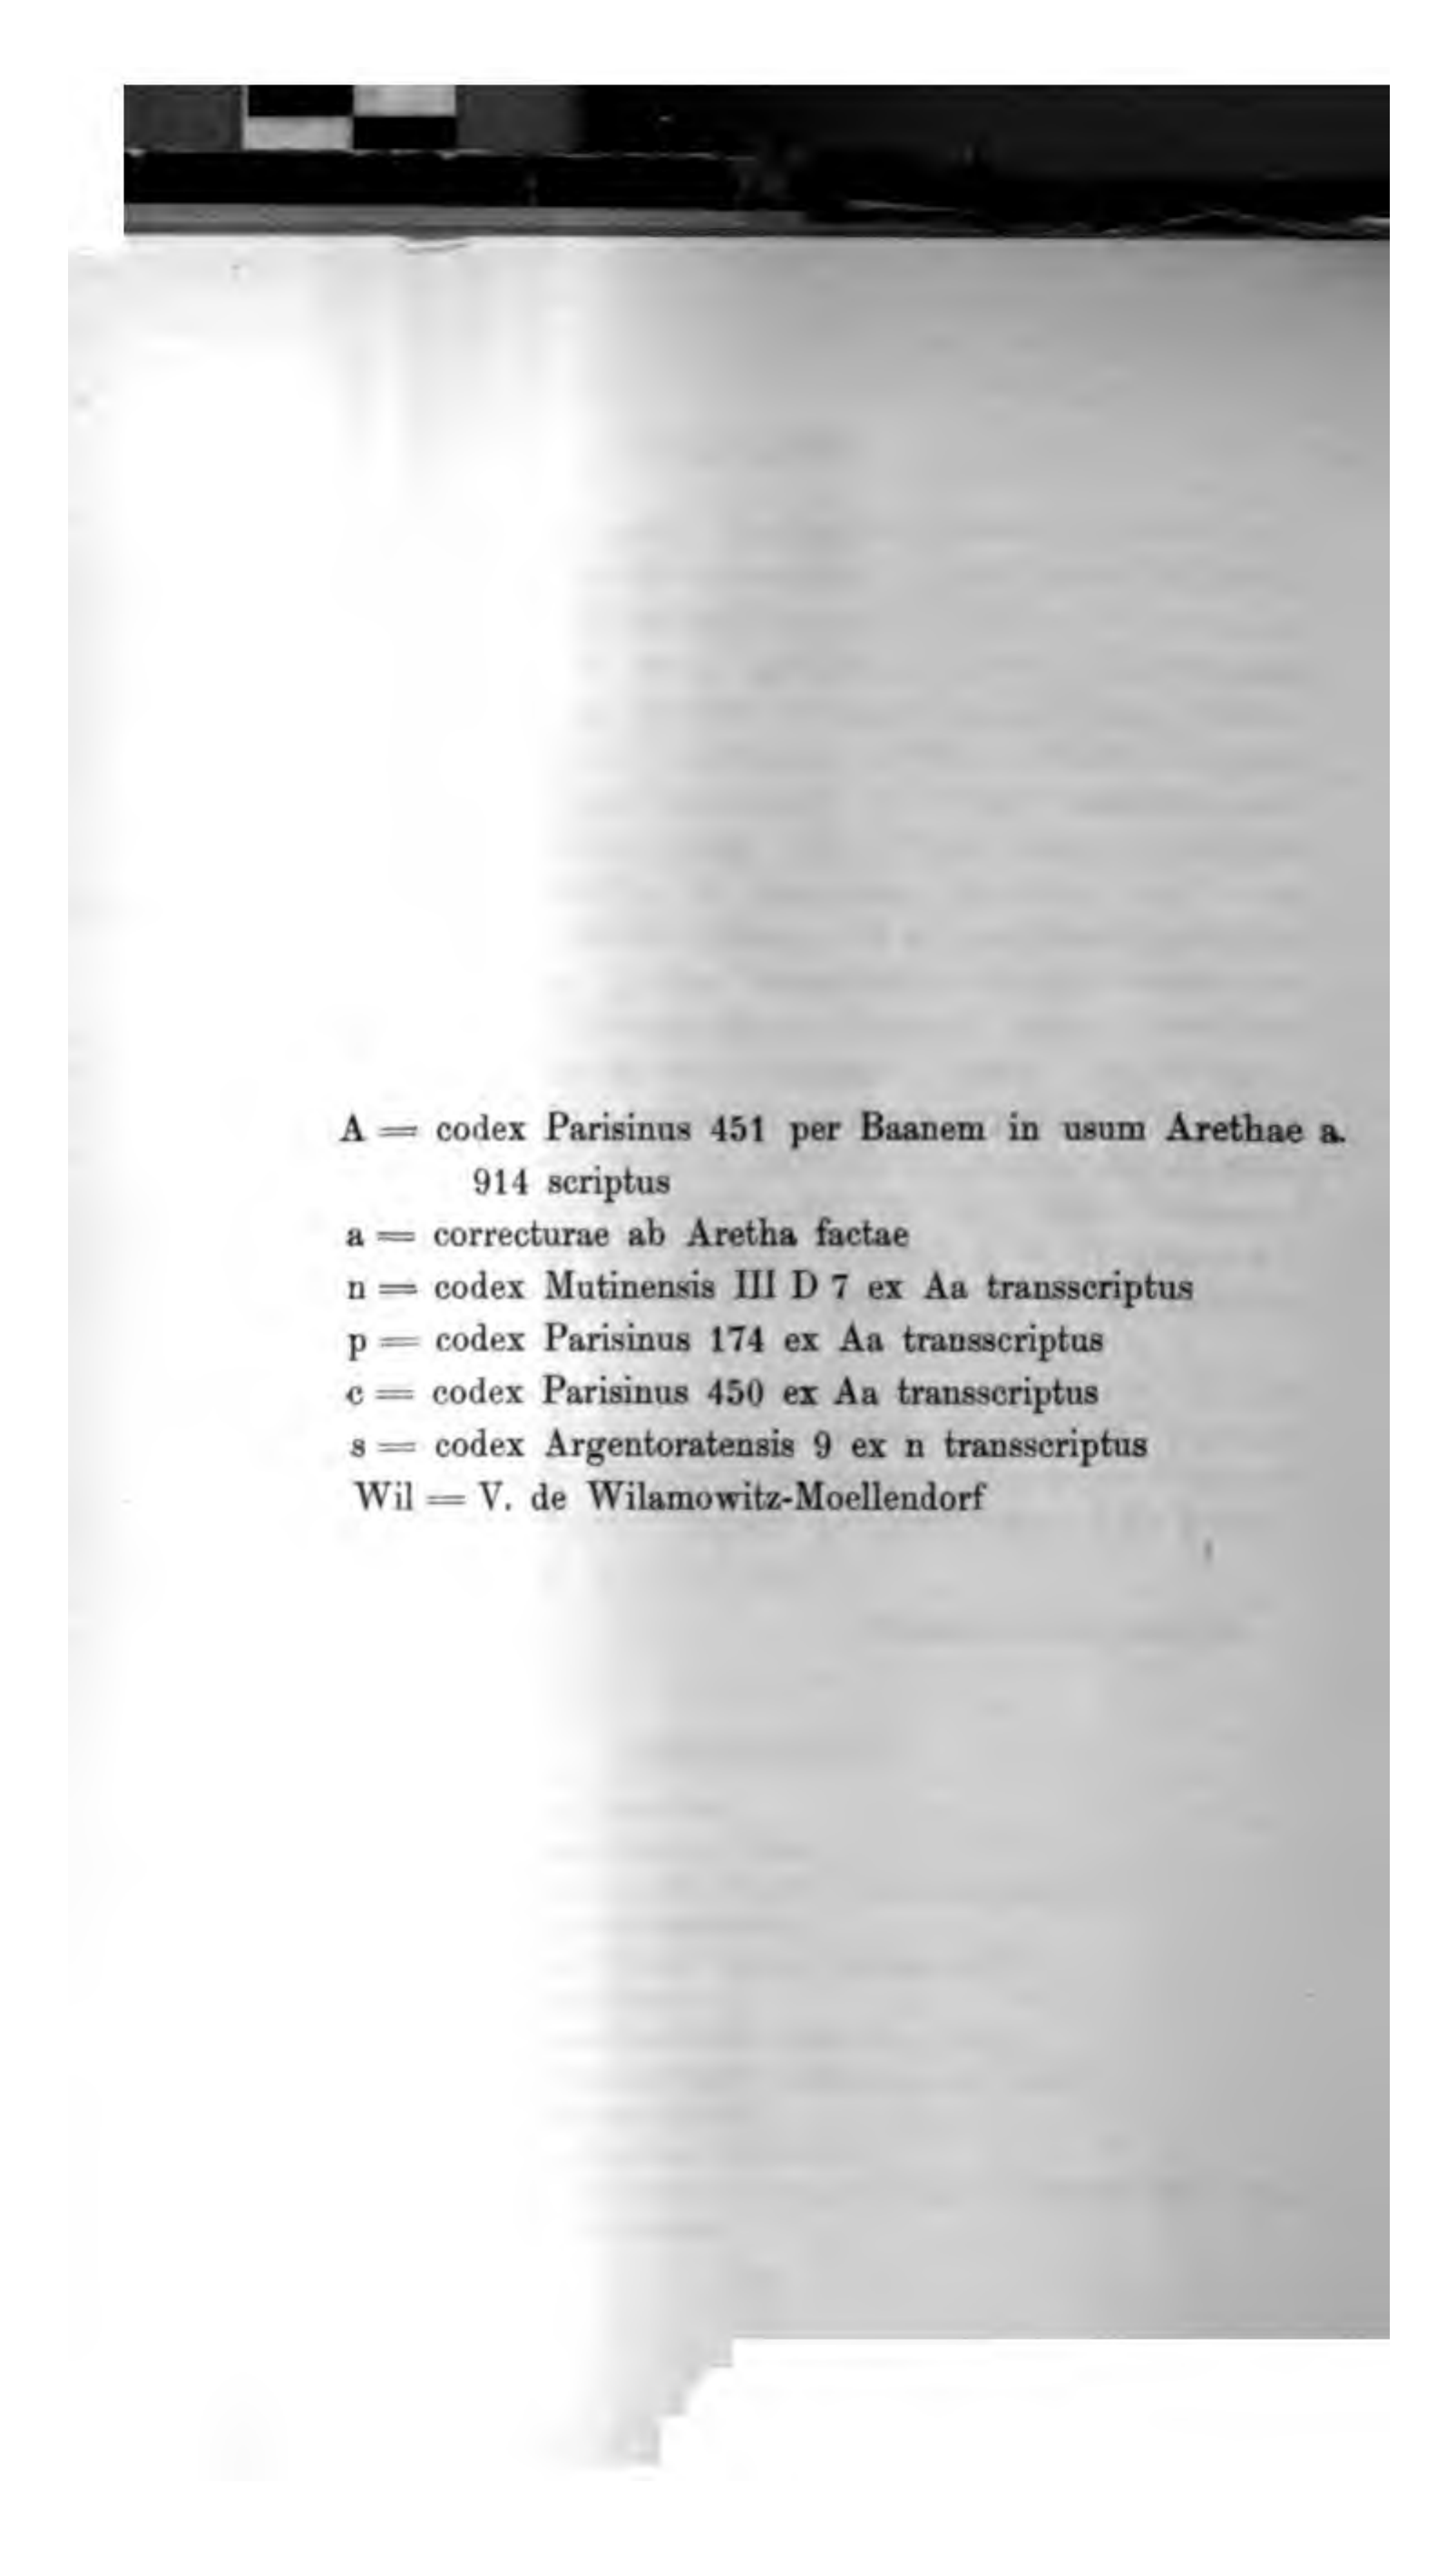 A = codex Parisinus 451 per Baanem in usum Arethae a.
914 scriptus
a = correcturae ab Aretha factae
n = codex Mutinensis III D 7 ex Aa transscriptus
p = codex Parisinus 174 ex Aa transscriptus
c = codex Parisinus 450 ex Aa transscriptus
s = codex Argentoratensis 9 ex n transscriptus
Wil = V. de Wilamowitz-Moellendorf